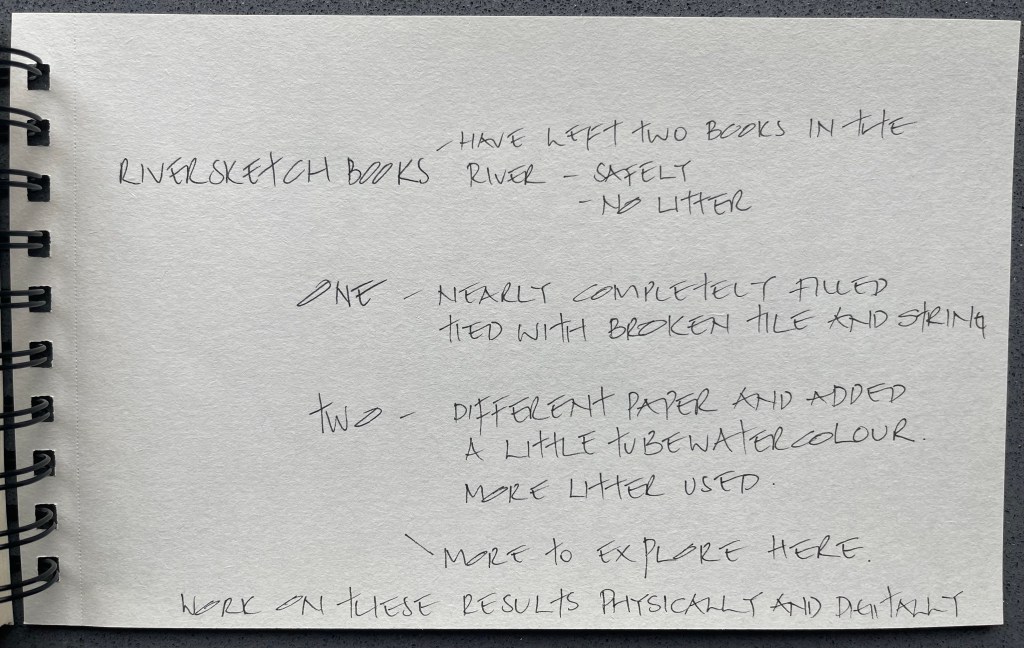 - HAVE LEFT TWO BOOKS IN THE
RIVERSKETCH BOOKS RIVER - SAFELY
- NO LITTER
ONE - NEARLY COMPLETELY FILLED
TIED WITH BROKEN TILE AND STRING
TWO - DIFFERENT PAPER AND ADDED
A LITTLE TUBE WATERCOLOUR.
MORE LITTER USED.
\ MORE TO EXPLORE HERE.
WORK ON THESE RESULTS PHYSICALLY AND DIGITALLY